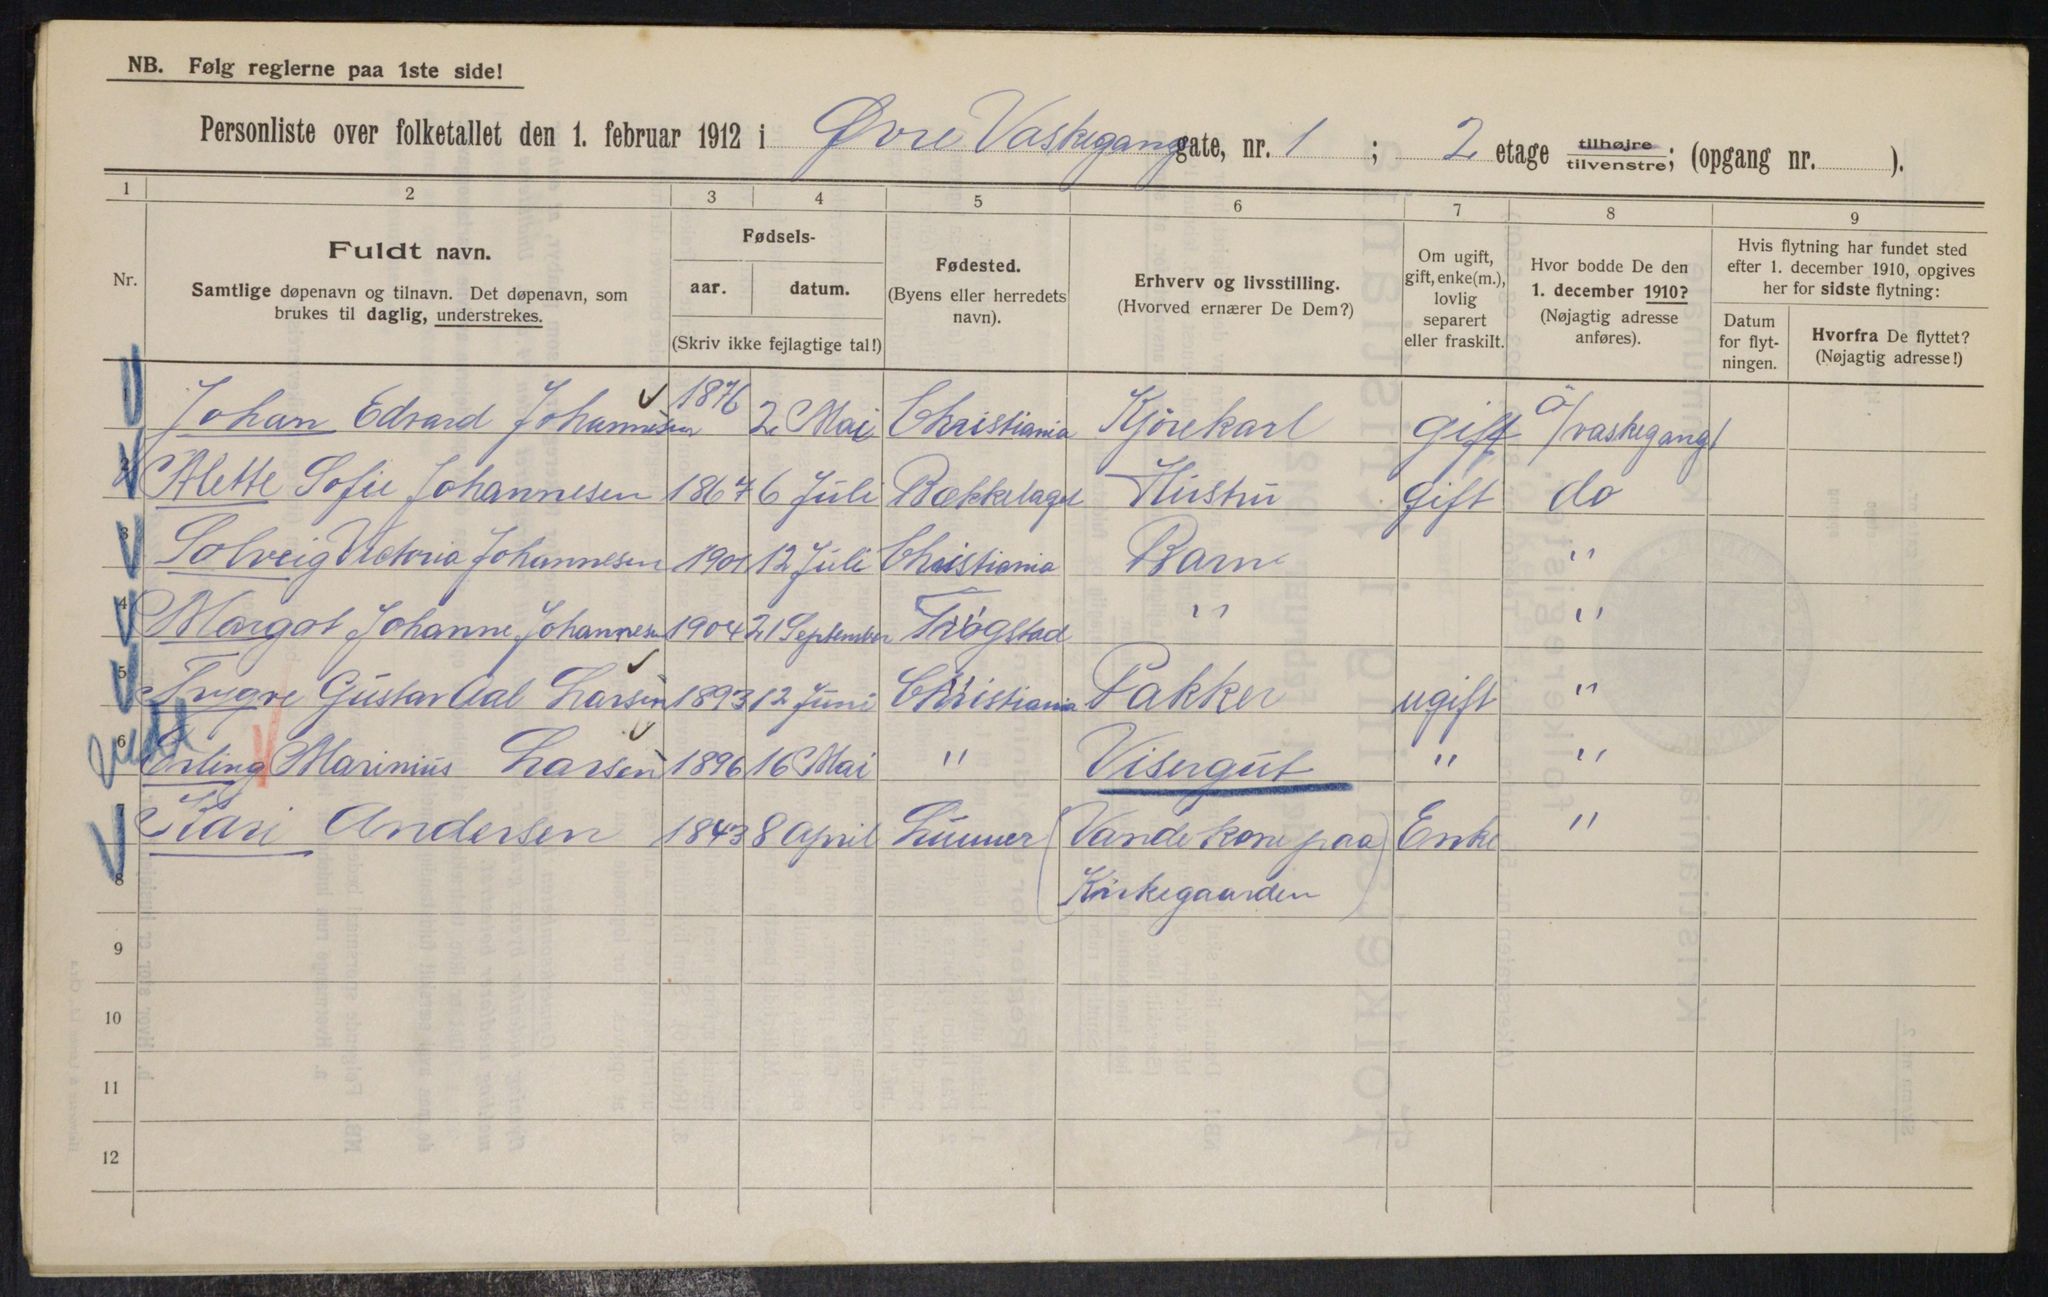 NB. Følg reglerne paa 1ste side!
Personliste over folketallet den 1. februar 1912 i Øvre Vaskegang gate, nr. 1 ; 2 etage tilhøjre tilvenstre; (opgang nr. ).
1 2 3 4 5 6 7 8 9
Nr.
Fuldt navn.
Samtlige døpenavn og tilnavn. Det døpenavn, som
brukes til daglig, understrekes.
Fødsels-
aar. datum.
(Skriv ikke fejlagtige tal!)
Fødested.
(Byens eller herredets
navn).
Erhverv og livsstilling.
(Hvorved ernærer De Dem?)
Om ugift,
gift, enke(m.),
lovlig
separert
eller fraskilt.
Hvor bodde De den
1. december 1910?
(Nøjagtig adresse
anføres).
Hvis flytning har fundet sted
efter 1. december 1910, opgives
her for sidste flytning:
Datum
for flyt-
ningen.
Hvorfra De flyttet?
(Nøjagtig adresse!)
1 Johan Edvard Johannesen 1876 2 Mai Christiania Kjørekarl gift Ø/vaskegang 1
2 Alette Sofie Johannesen 1867 6 Juli Bækkelaget Hustru gift do
3 Solveig Victoria Johannesen 1901 12 Juli Christiania Barn "
4 Margot Johanne Johannesen 1904 21 September Trøgstad " "
5 Trygve Gustav Aal Larsen 1893 12 Juni Christiania Pakker ugift "
6 Erling Marinius Larsen 1896 16 Mai " Visergut " "
Kari Andersen 1843 8 April Lunner (Vandekone paa Enke "
8 Kirkegaarden)
9
10
11
12